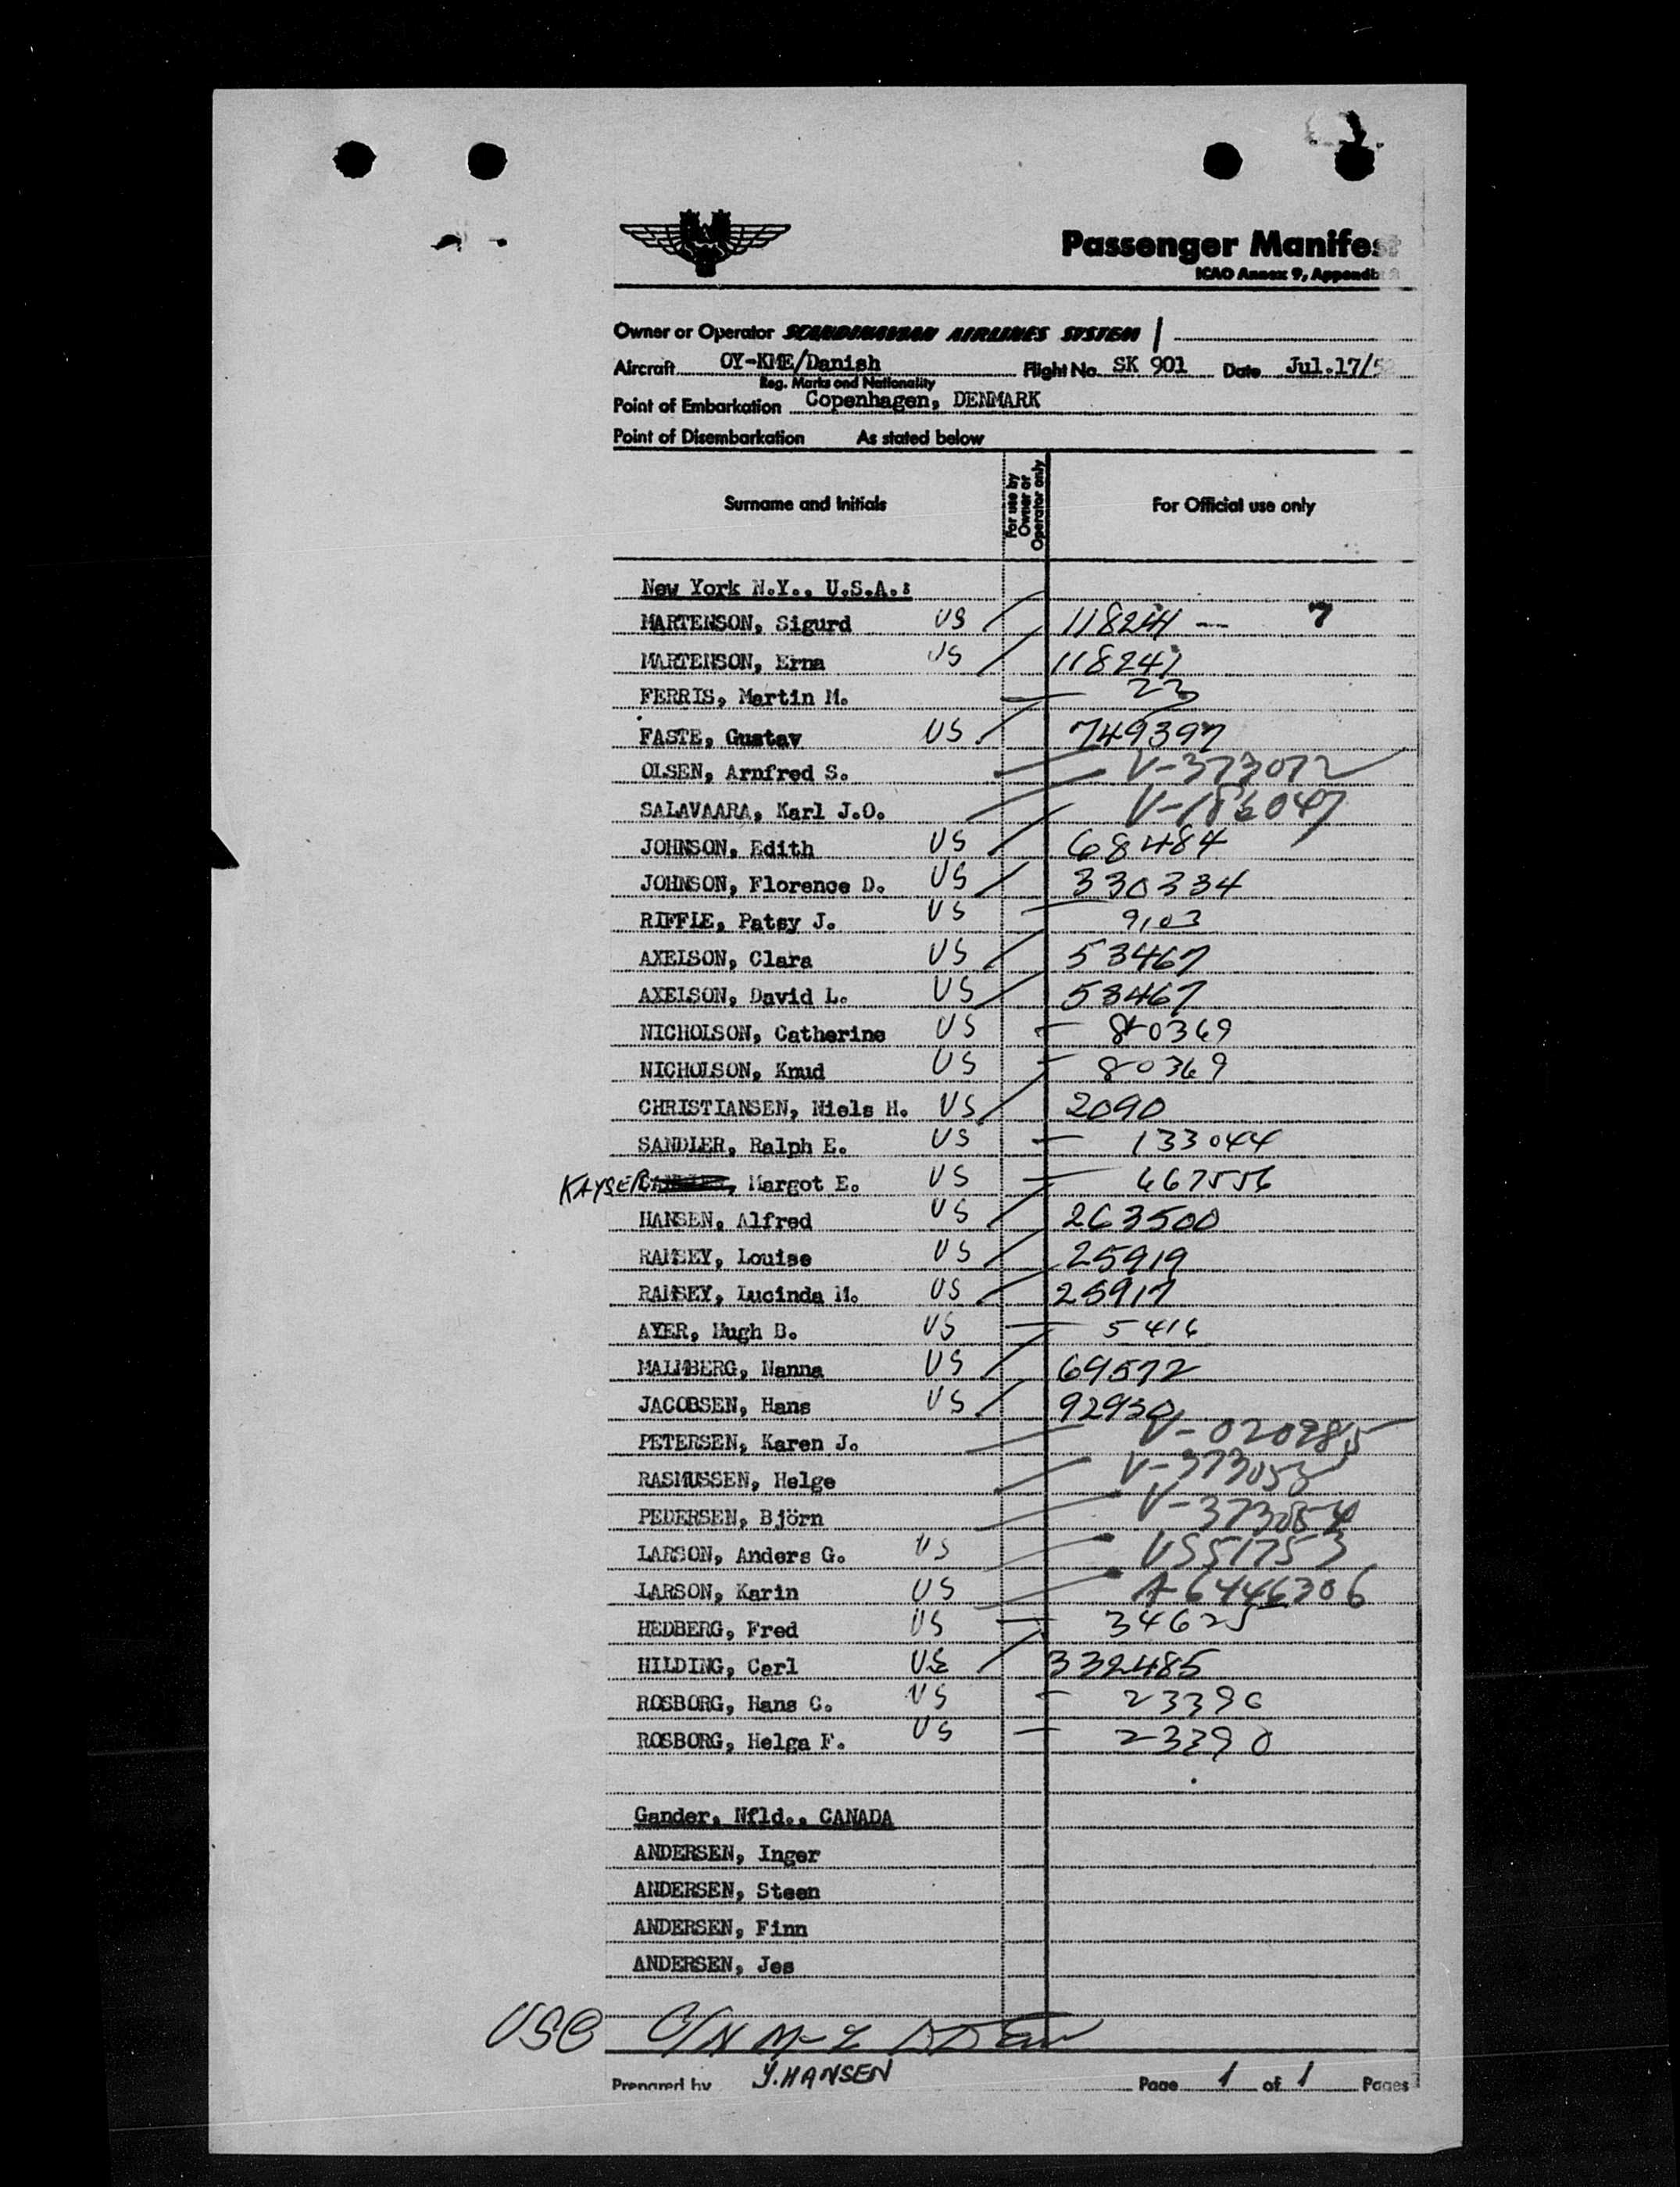 Passenger Manifest
ICAO Annex 9, Appendix
Owner or Operator SCANDINAVIAN AIRLINES SYSTEM
Aircraft OY-KME/Danish Flight No. SK 901 Date Jul.17/5
Reg. Marks and Nationality
Point of Embarkation Copenhagen, DENMARK
Point of Disembarkation As stated below
Surname and Initials For use by Owner or Operator only For Official use only
New York N.Y., U.S.A.:
MARTENSON, Sigurd US 118241 — 7
MARTENSON, Erna US 118241
FERRIS, Martin M. 23
FASTE, Gustav US 749397
OLSEN, Arnfred S. V-373072
SALAVAARA, Karl J.O. V-186047
JOHNSON, Edith US 68484
JOHNSON, Florence D. US 330334
RIFFLE, Patsy J. US 9103
AXELSON, Clara US 53467
AXELSON, David L. US 53467
NICHOLSON, Catherine US 80369
NICHOLSON, Knud US 80369
CHRISTIANSEN, Niels H. US 2090
SANDLER, Ralph E. US 133044
KAYSER, Margot E. US 667556
HANSEN, Alfred US 263500
RAMSEY, Louise US 25919
RAMSEY, Lucinda M. US 25917
AYER, Hugh B. US 5416
MALMBERG, Nanna US 69572
JACOBSEN, Hans US 92930
PETERSEN, Karen J. V-020985
RASMUSSEN, Helge V-373053
PEDERSEN, Björn V-373054
LARSON, Anders G. US US51753
LARSON, Karin US A-6446306
HEDBERG, Fred US 34625
HILDING, Carl US 332485
ROSBORG, Hans C. US 23390
ROSBORG, Helga F. US 23390
Gander, Nfld., CANADA
ANDERSEN, Inger
ANDERSEN, Steen
ANDERSEN, Finn
ANDERSEN, Jes
USC
Prepared by Y.HANSEN Page 1 of 1 Pages